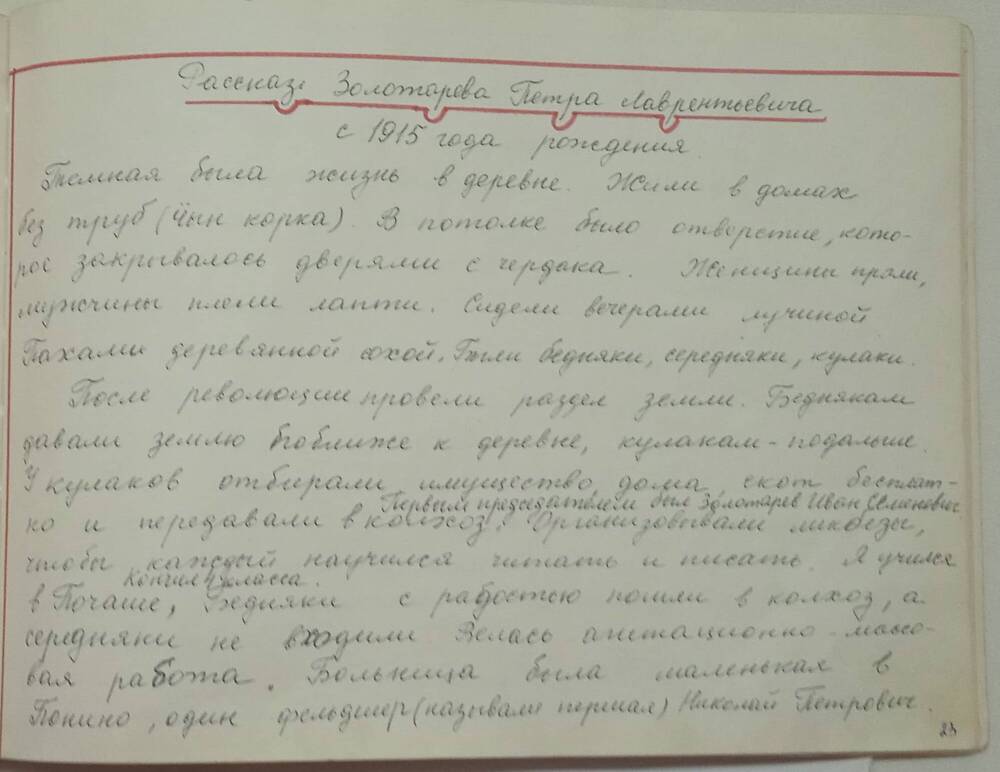 Рассказ Золотарева Петра Лаврентьевича
с 1915 года рождения.
Темная была жизнь в деревне. Жили в домах
без труб (Чын корка). В потолке было отверстие, кото-
рое закрывалось дверями с чердака. Женщины пряли,
мужчины плели лапти. Сидели вечерами лучиной
Пахали деревянной сохой. Были бедняки, середняки, кулаки.
После революции провели раздел земли. Беднякам
давали землю поближе к деревне, кулакам - подальше.
У кулаков отбирали имущество дома скот бесплат-
Первым председателем был Золотарев Иван Семенович
но и передавали в колхоз. Организовывали ликбезы,
чтобы каждый научился читать и писать. Я учился
Кончил 4 класса.
в Почаше, Бедняки с радостью пошли в колхоз, а
середняки не входили Велась агитационно - массо-
вая работа. Больница была маленькая в
Понино, один фельдшер (называли першал) Николай Петрович.
23